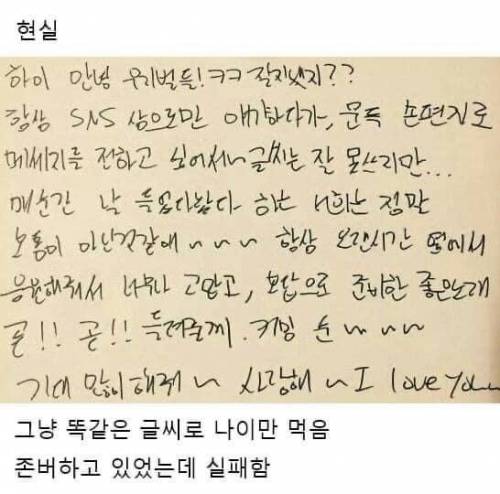 현실
하이 안녕 우리벌들! ㅋㅋ 잘지냈지??
항상 SNS 상으로만 얘기하다가, 문득 손편지로
메세지를 전하고 싶어서~ 글씨는 잘 못쓰지만...
매순간 날 들었다놨다 하는 너희는 정말
보통이 아닌것같애 ~ ~ ~ 항상 오랜시간 옆에서
응원해줘서 너무나 고맙고, 보답으로 준비한 좋은노래
곧!! 곧!! 들려줄께. 커밍 순 ~ ~ ~
기대 많이해줘 ~ 사랑해 ~ I love You~
그냥 똑같은 글씨로 나이만 먹음
존버하고 있었는데 실패함